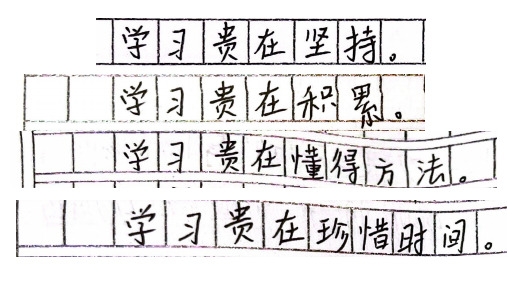 学习贵在坚持。
学习贵在积累。
学习贵在懂得方法。
学习贵在珍惜时间。